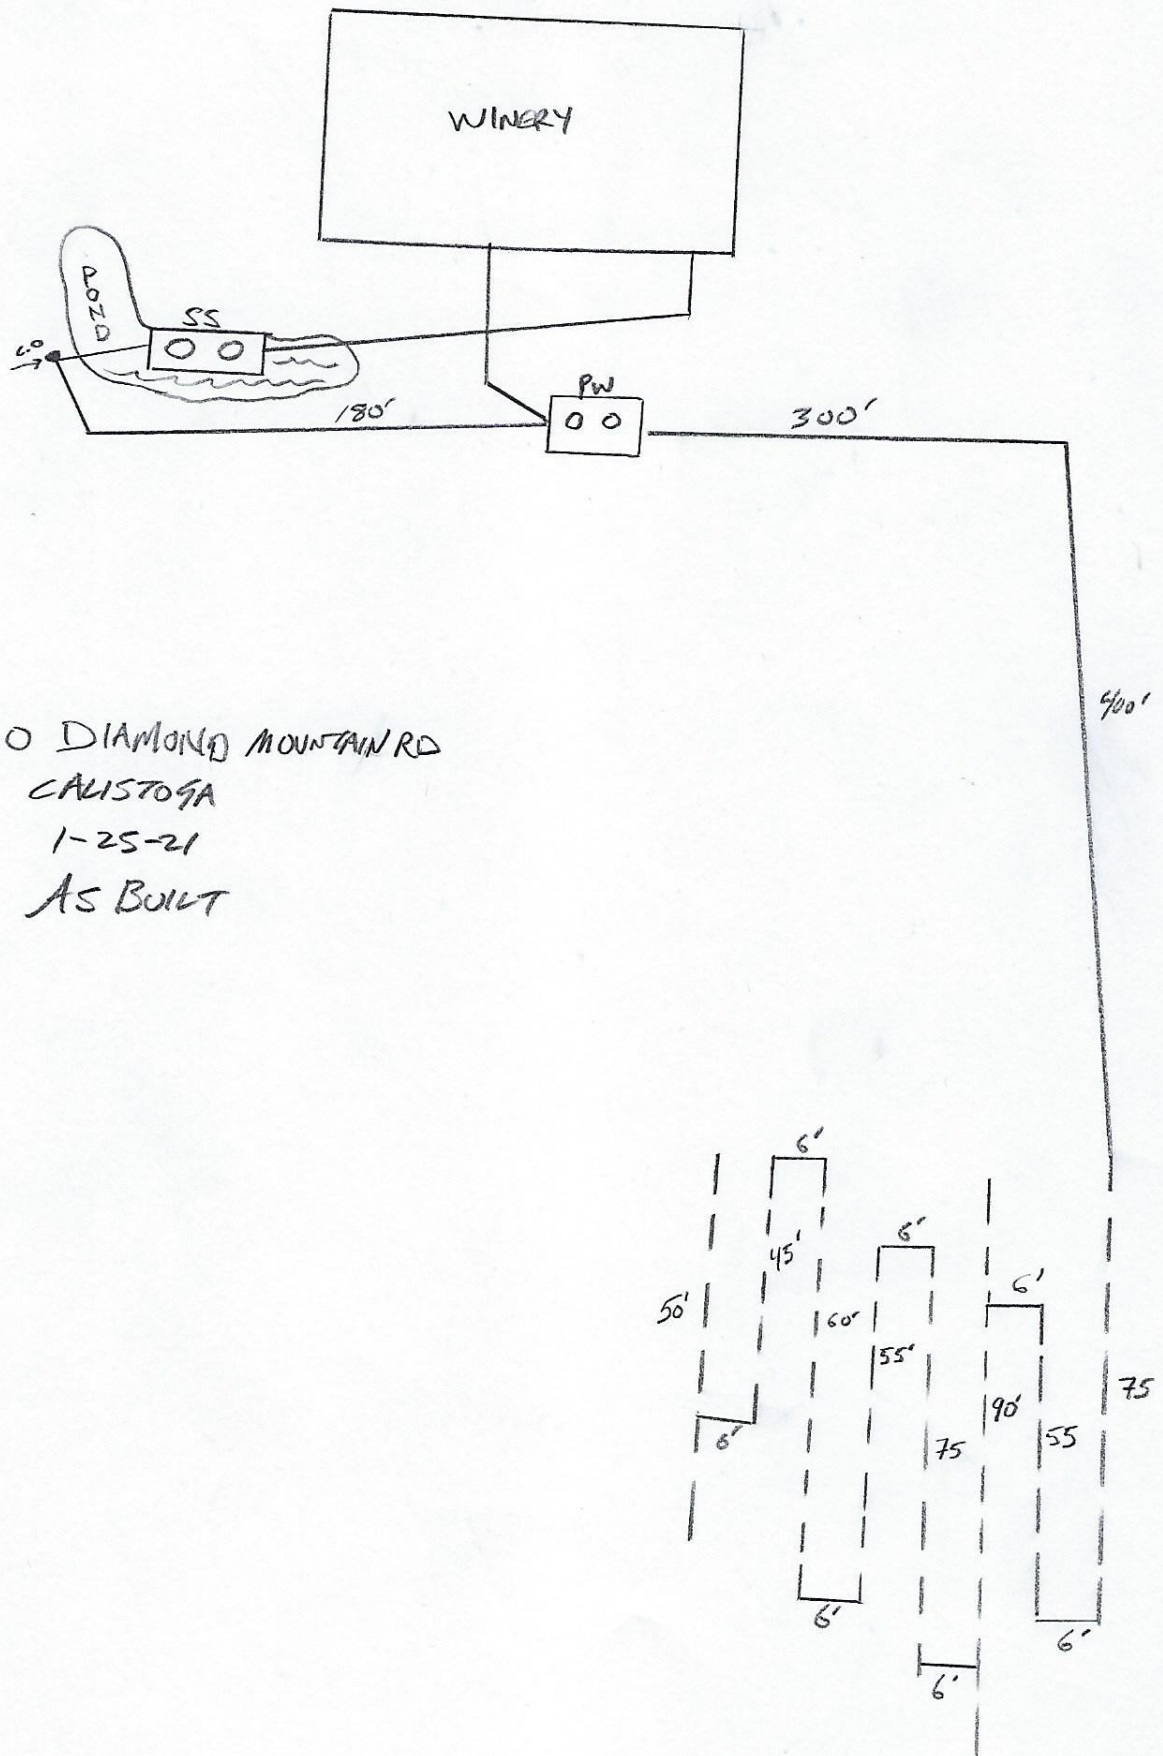 WINERY
POND
SS
C.O
PW
180'
300'
400'
O DIAMOND MOUNTAIN RD
CALISTOGA
1-25-21
AS BUILT
6'
45'
6'
50'
6'
60'
55'
75
90'
55
75
6'
6'
6'
6'